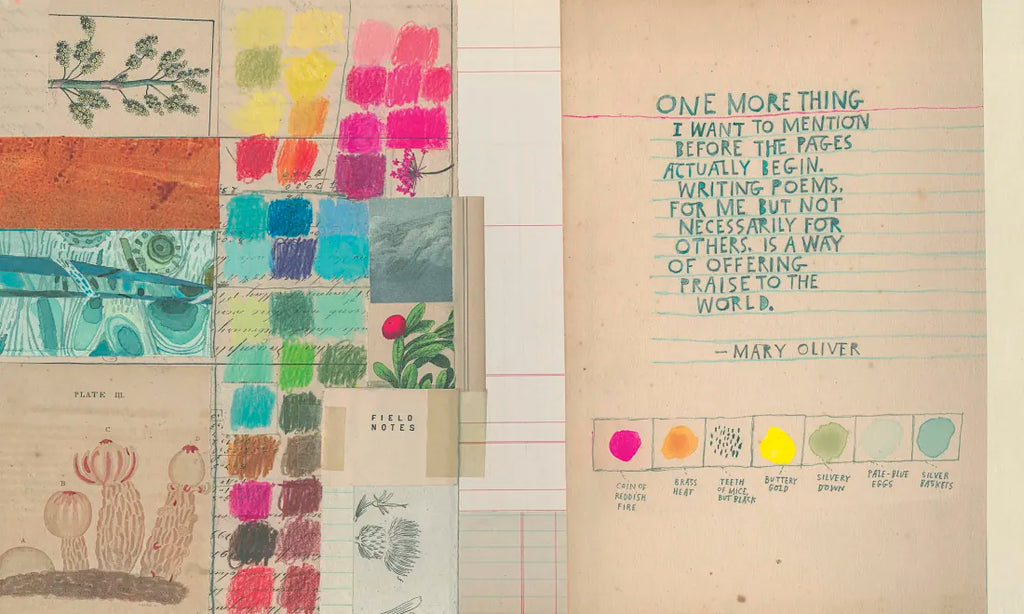 PLATE III.
C
D
B
A
FIELD
NOTES
ONE MORE THING
I WANT TO MENTION
BEFORE THE PAGES
ACTUALLY BEGIN.
WRITING POEMS,
FOR ME BUT NOT
NECESSARILY FOR
OTHERS, IS A WAY
OF OFFERING
PRAISE TO THE
WORLD.
—MARY OLIVER
COIN OF
REDDISH
FIRE
BRASS
HEAT
TEETH
OF MICE,
BUT BLACK
BUTTERY
GOLD
SILVERY
DOWN
PALE-BLUE
EGGS
SILVER
BASKETS